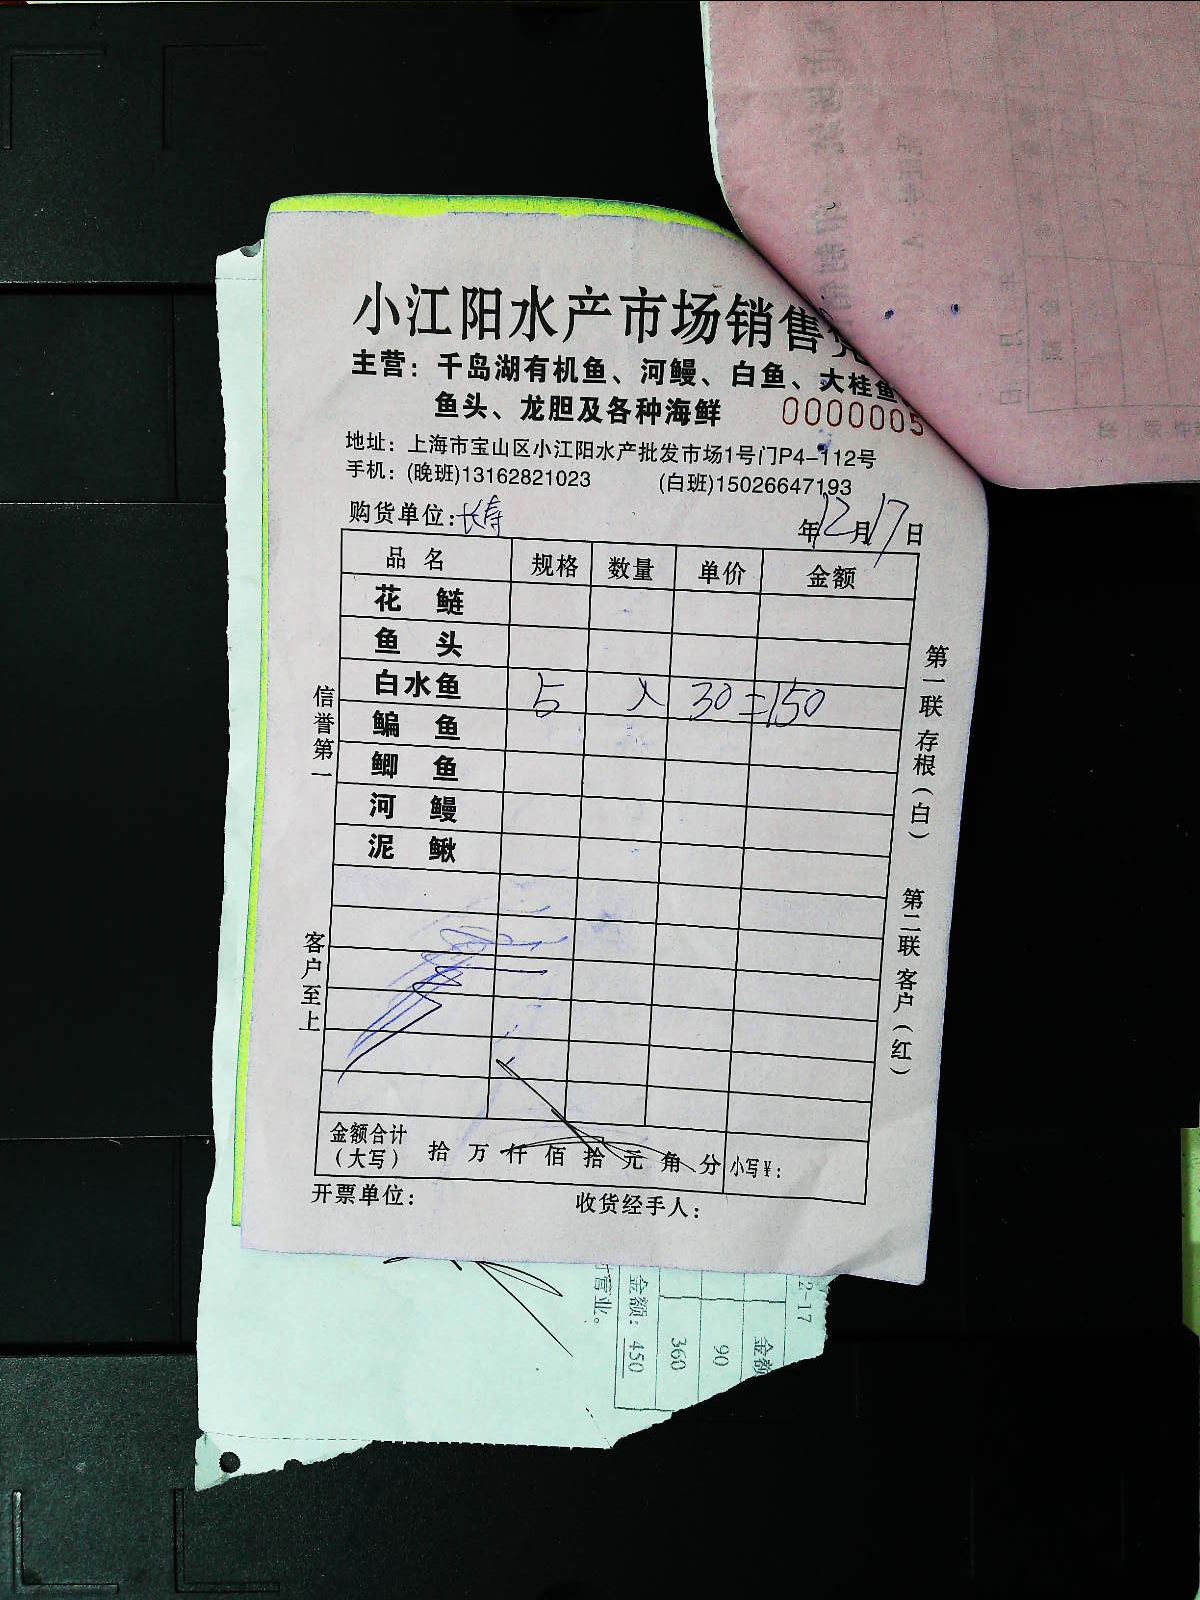 小江阳水产市场销售
主营：千岛湖有机鱼、河鳗、白鱼、大桂鱼
鱼头、龙胆及各种海鲜 0000005
地址：上海市宝山区小江阳水产批发市场1号门P4-112号
手机：(晚班)13162821023 (白班)15026647193
购货单位：长寿 年12月17日
品名 规格 数量 单价 金额
花鲢
鱼头
白水鱼 5 入 30=150
鳊鱼
鲫鱼
河鳗
泥鳅
金额合计（大写） 拾 万 仟 佰 拾 元 角 分 小写￥：
开票单位： 收货经手人：
信誉第一
客户至上
第一联 存根（白）
第二联 客户（红）
2-17
金额
90
360
金额：450
营业。